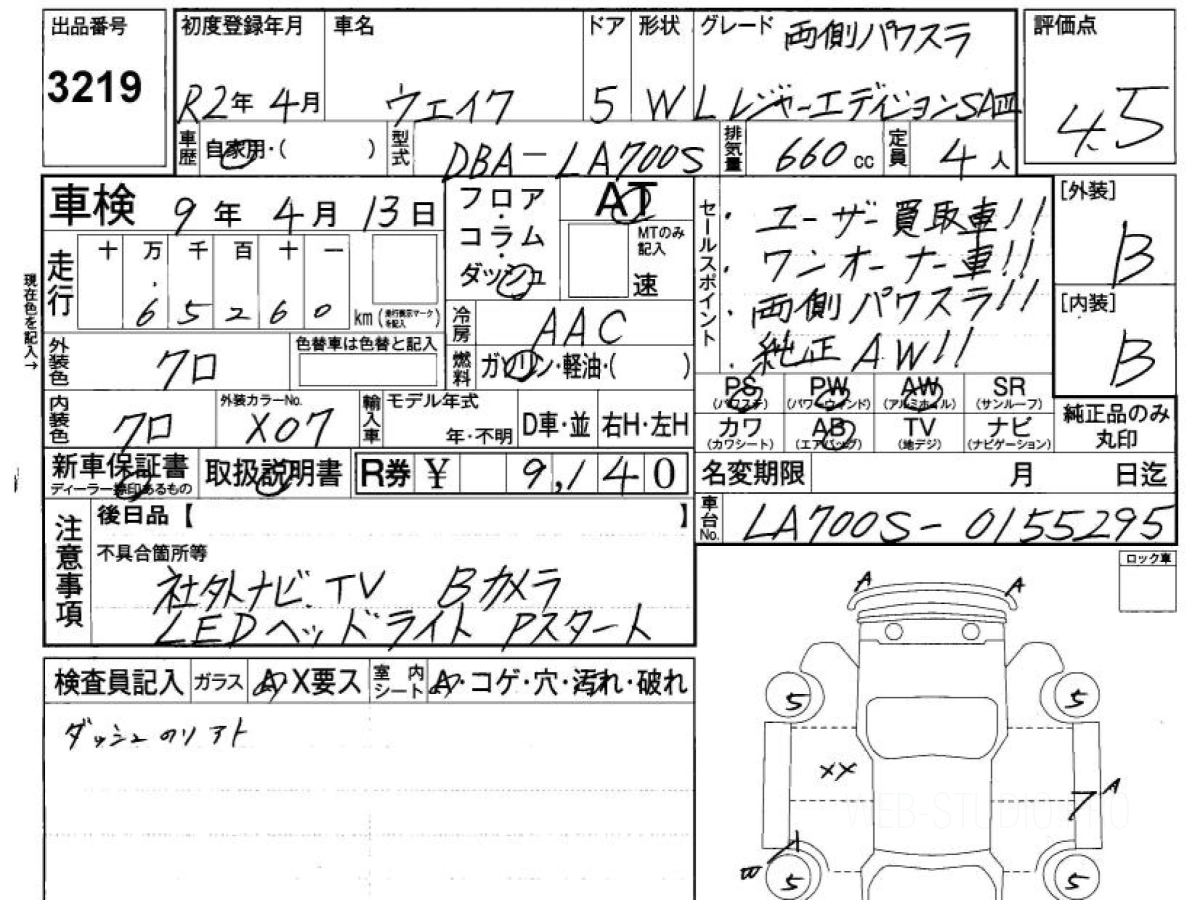 出品番号
3219
初度登録年月
R2年 4月
車名
ウェイク
ドア
5
形状
W
グレード 両側パワスラ
L レジャーエディションSAⅢ
評価点
4.5
車歴
自家用・( )
型式
DBA-LA700S
排気量
660cc
定員
4人
車検
9年 4月 13日
現在色を記入→
走行
十 万 千 百 十 一
6 5 2 6 0 km
(走行表示マークを記入)
フロア・
コラム・
ダッシュ
AT
MTのみ
記入
速
冷房
AAC
燃料
ガソリン・軽油・( )
セールスポイント
・ユーザー買取車!!
・ワンオーナー車!!
・両側パワスラ!!
・純正AW!!
[外装]
B
[内装]
B
外装色
クロ
色替車は色替と記入
内装色
クロ
外装カラーNo.
X07
輸入車
モデル年式
年・不明
D車・並
右H・左H
PS
(パワステ)
PW
(パワーウィンド)
AW
(アルミホイル)
SR
(サンルーフ)
カワ
(カワシート)
AB
(エアバッグ)
TV
(地デジ)
ナビ
(ナビゲーション)
純正品のみ
丸印
新車保証書
ディーラー捺印あるもの
取扱説明書
R券 ¥ 9,140
名変期限 月 日迄
車台No.
LA700S-0155295
注意事項
後日品【 】
不具合箇所等
社外ナビ.TV Bカメラ
LEDヘッドライト Pスタート
ロック車
検査員記入
ガラス
A X要ス
室内シート
A・コゲ・穴・汚れ・破れ
ダッシュのリアト
A A
5 5
XX
A
A
5 5
WEB-STUDIO.PRO